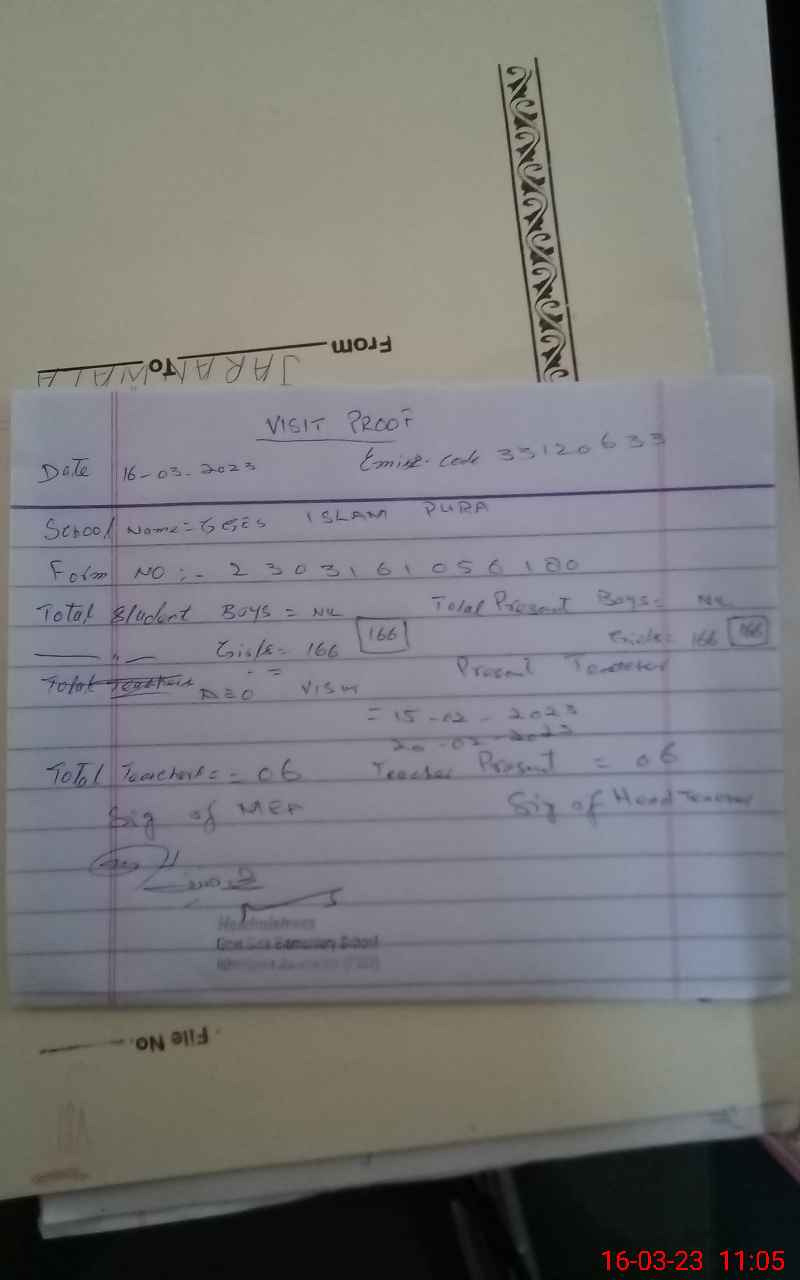 From
To
JARANWALA
VISIT PROOF
Date 16-03-2023 Emise-code 33120633
School Name = GGES ISLAM PURA
Form NO :- 2303161056180
Total Student Boys = NIL Total Present Boys = NIL
—— " — Girls = 166 166 Girls = 166 166
Total Teachers Present Teacher
DEO Visit
= 15-02-2023
20-02-2023
Total Teachers = 06 Teacher Present = 06
Sig of MEA Sig of Head Teacher
Headmistress
Govt Girls Elementary School
File No.
16-03-23 11:05